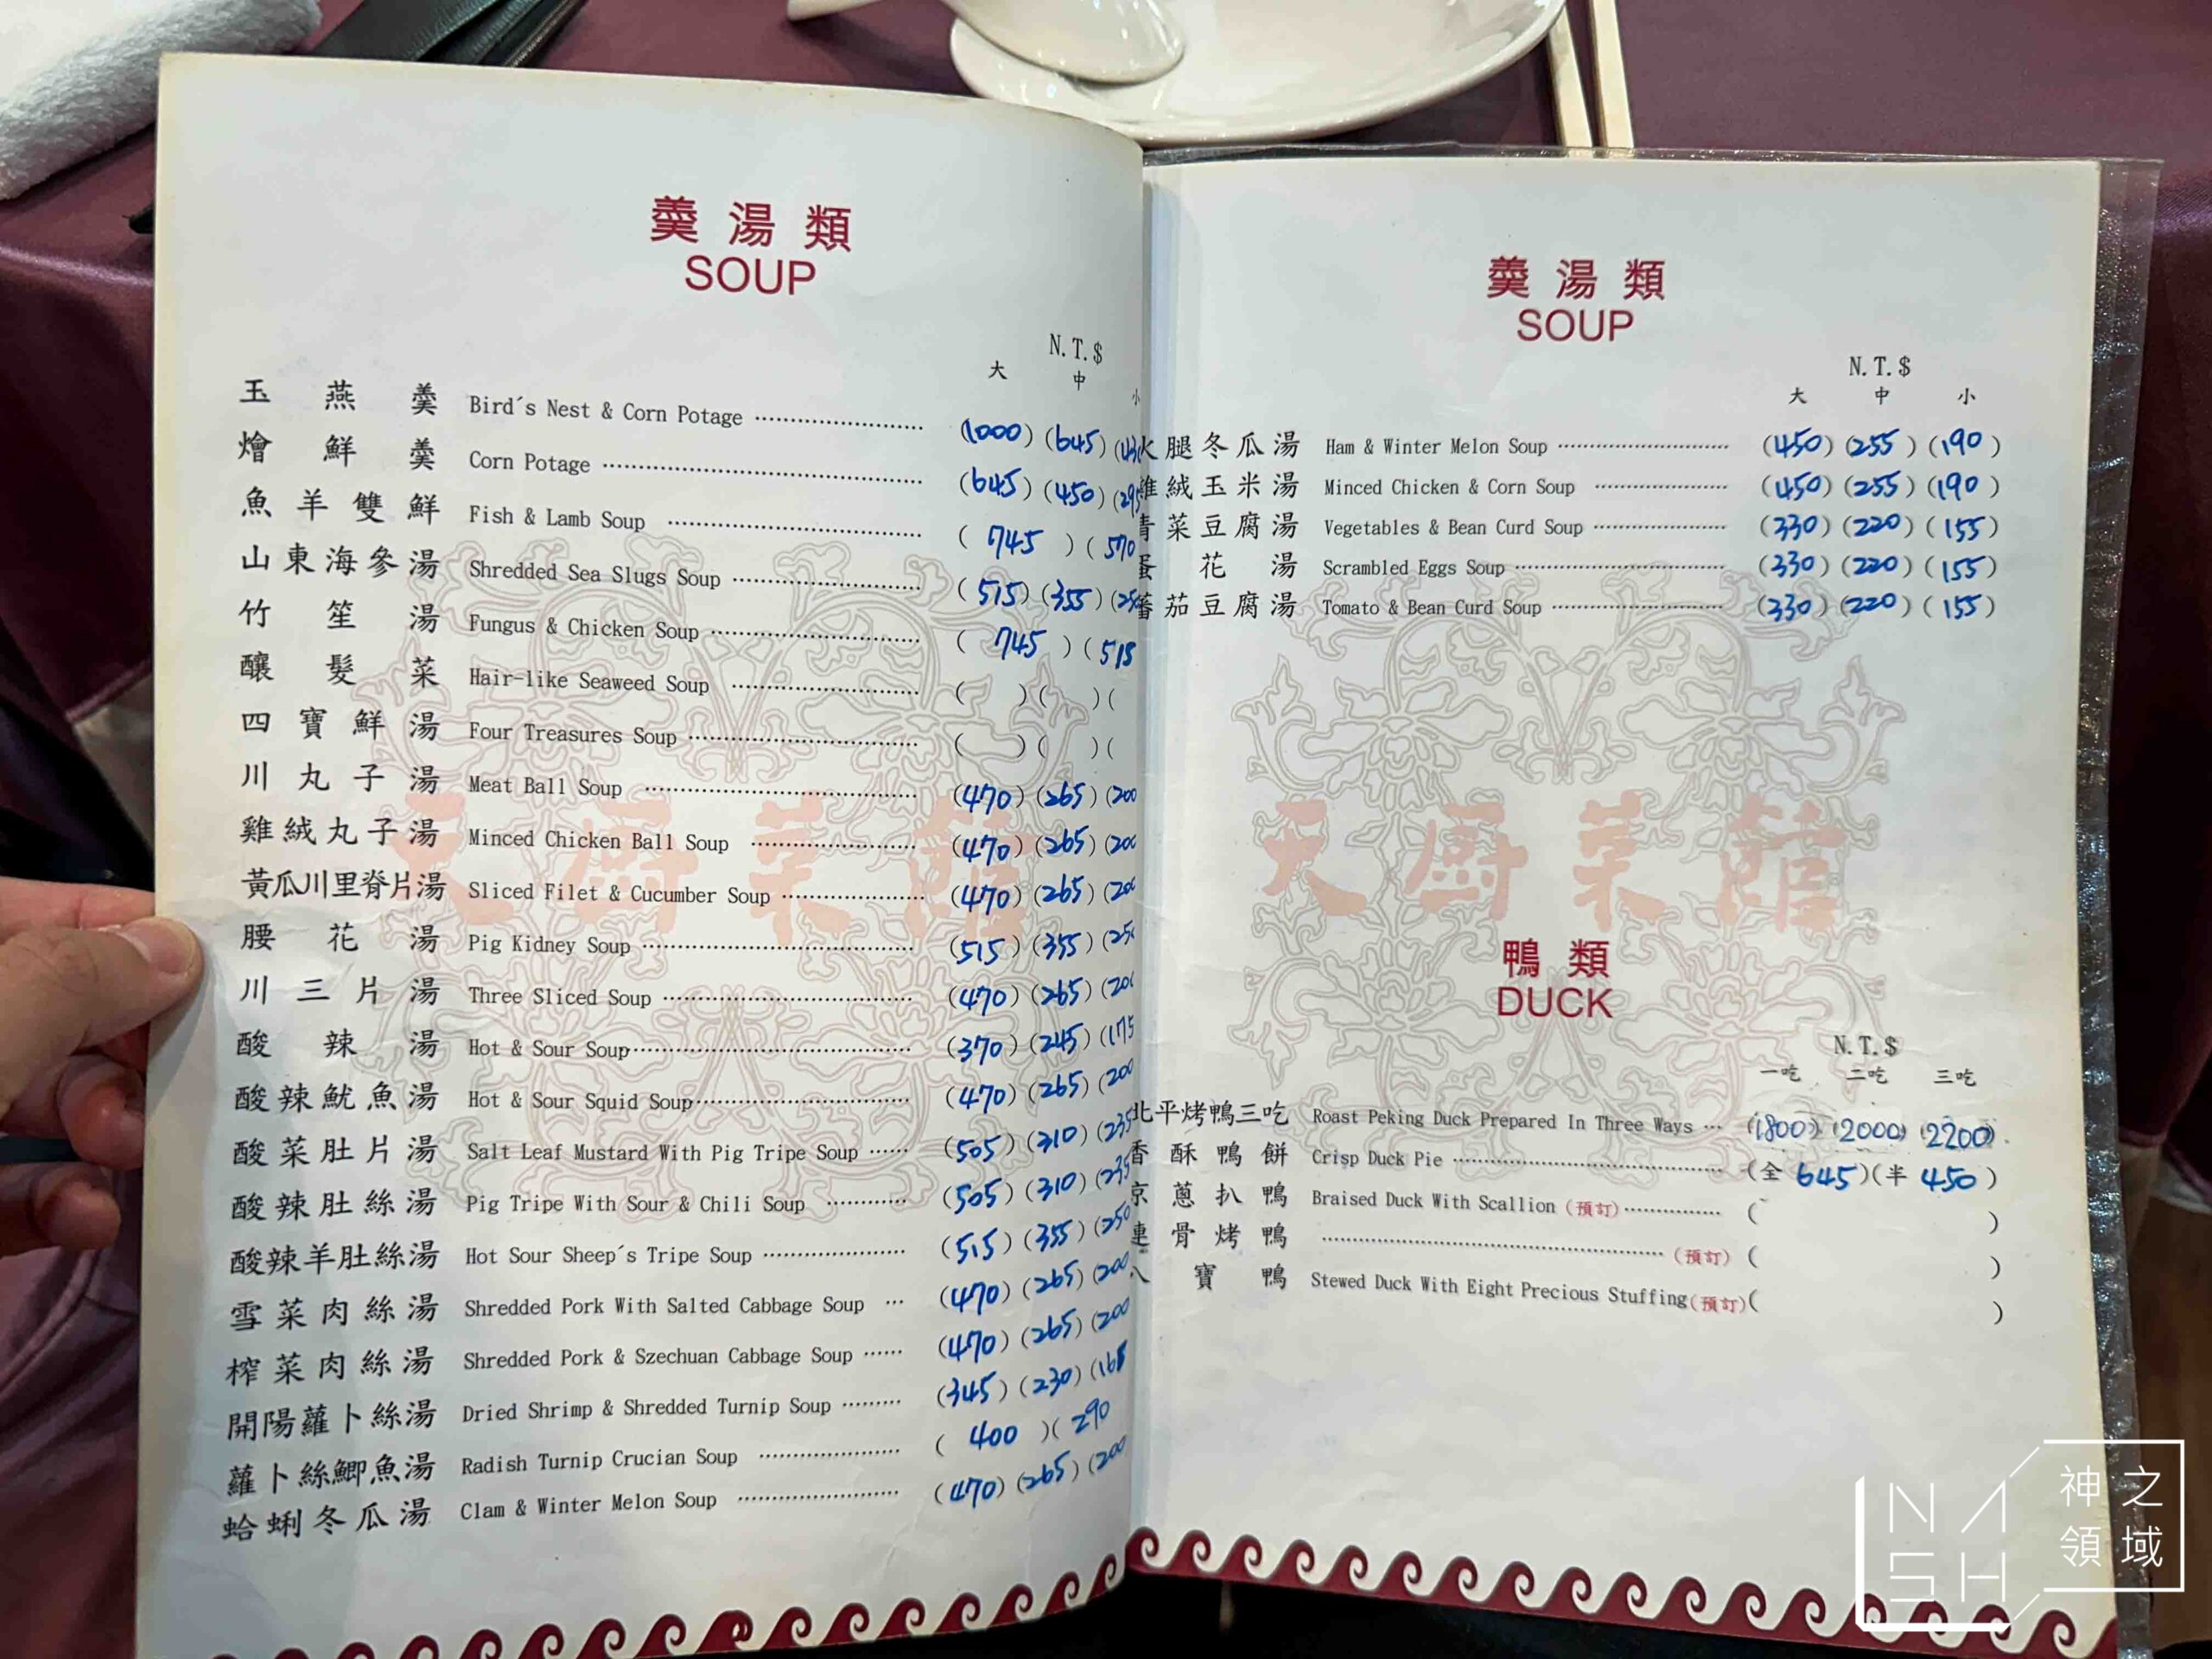 羹湯類
SOUP
N.T.$
大 中 小
玉燕羹 Bird's Nest & Corn Potage (1000) (645)
燴鮮羹 Corn Potage (645) (450) (295
魚羊雙鮮 Fish & Lamb Soup ( 745 ) ( 570
山東海參湯 Shredded Sea Slugs Soup (515) (355) (250
竹笙湯 Fungus & Chicken Soup ( 745 ) ( 515
釀髮菜 Hair-like Seaweed Soup ( ) ( ) (
四寶鮮湯 Four Treasures Soup ( ) ( ) (
川丸子湯 Meat Ball Soup (470) (265) (200
雞絨丸子湯 Minced Chicken Ball Soup (470) (265) (200
黃瓜川里脊片湯 Sliced Filet & Cucumber Soup (470) (265) (200
腰花湯 Pig Kidney Soup (515) (355) (250
川三片湯 Three Sliced Soup (470) (265) (200
酸辣湯 Hot & Sour Soup (370) (245) (175
酸辣魷魚湯 Hot & Sour Squid Soup (470) (265) (200
酸菜肚片湯 Salt Leaf Mustard With Pig Tripe Soup (505) (310) (235
酸辣肚絲湯 Pig Tripe With Sour & Chili Soup (505) (310) (235
酸辣羊肚絲湯 Hot Sour Sheep's Tripe Soup (515) (355) (250
雪菜肉絲湯 Shredded Pork With Salted Cabbage Soup (470) (265) (200
榨菜肉絲湯 Shredded Pork & Szechuan Cabbage Soup (470) (265) (200
開陽蘿卜絲湯 Dried Shrimp & Shredded Turnip Soup (345) (230) (165
蘿卜絲鯽魚湯 Radish Turnip Crucian Soup ( 400 ) ( 290
蛤蜊冬瓜湯 Clam & Winter Melon Soup (470) (265) (200
天厨菜館
羹湯類
SOUP
N.T.$
大 中 小
火腿冬瓜湯 Ham & Winter Melon Soup (450) (255) (190)
雞絨玉米湯 Minced Chicken & Corn Soup (450) (255) (190)
青菜豆腐湯 Vegetables & Bean Curd Soup (330) (220) (155)
蛋花湯 Scrambled Eggs Soup (330) (220) (155)
蕃茄豆腐湯 Tomato & Bean Curd Soup (330) (220) (155)
天厨菜館
鴨類
DUCK
N.T.$
一吃 二吃 三吃
北平烤鴨三吃 Roast Peking Duck Prepared In Three Ways (1800) (2000) (2200)
香酥鴨餅 Crisp Duck Pie (全 645) (半 450)
京蔥扒鴨 Braised Duck With Scallion (預訂) ( )
連骨烤鴨 (預訂) ( )
八寶鴨 Stewed Duck With Eight Precious Stuffing (預訂) ( )
NASH
神之
領域